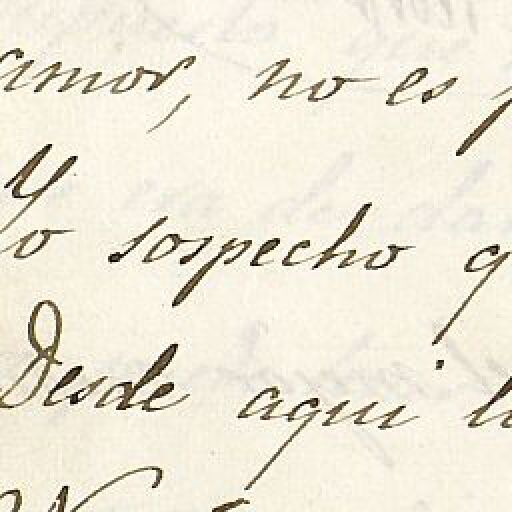 amor, no es
Yo sospecho
Desde aqui